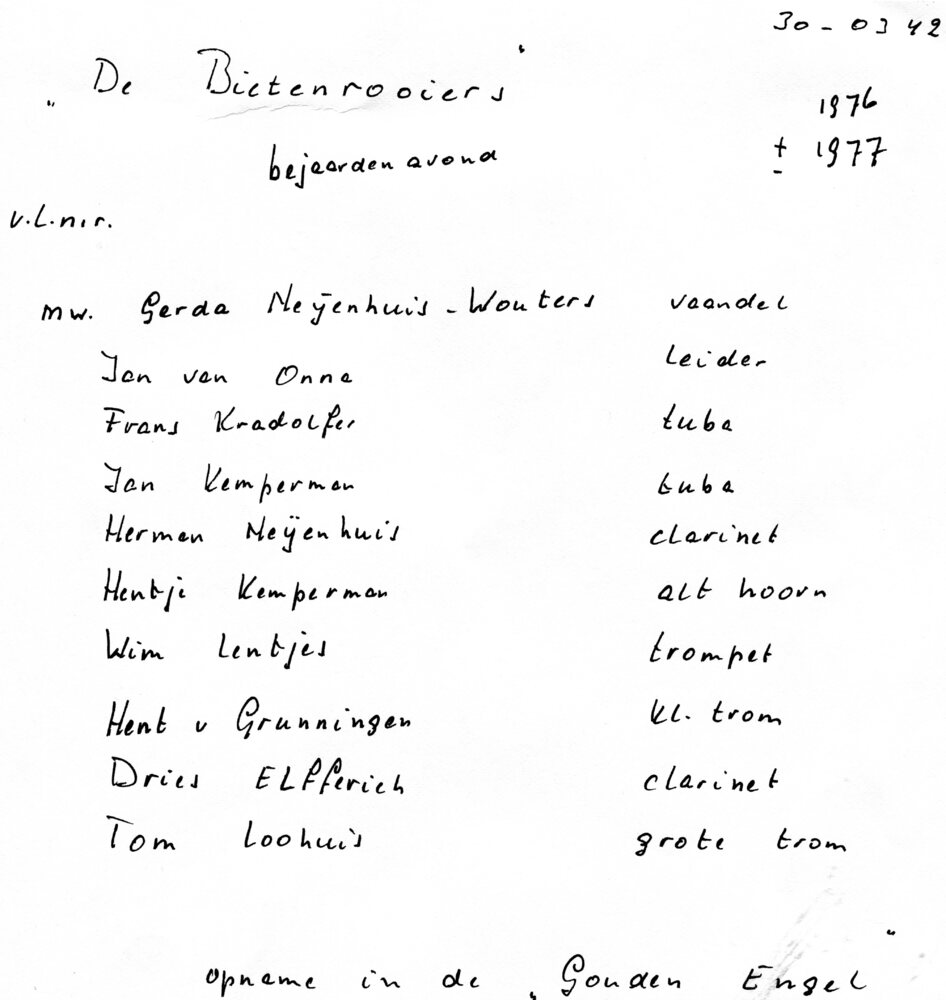 30-03 42
„De Bietenrooiers"
1976
bejaardenavond ± 1977
v.l.n.r.
mw. Gerda Meÿenhuis-Wouters vaandel
Jan van Onna leider
Frans Kradolfer tuba
Jan Kemperman tuba
Herman Meÿenhuis clarinet
Hentje Kemperman alt hoorn
Wim Lentjes trompet
Hent v Grunningen kl. trom
Dries Elfferich clarinet
Tom Loohuis grote trom
opname in de „Gouden Engel"